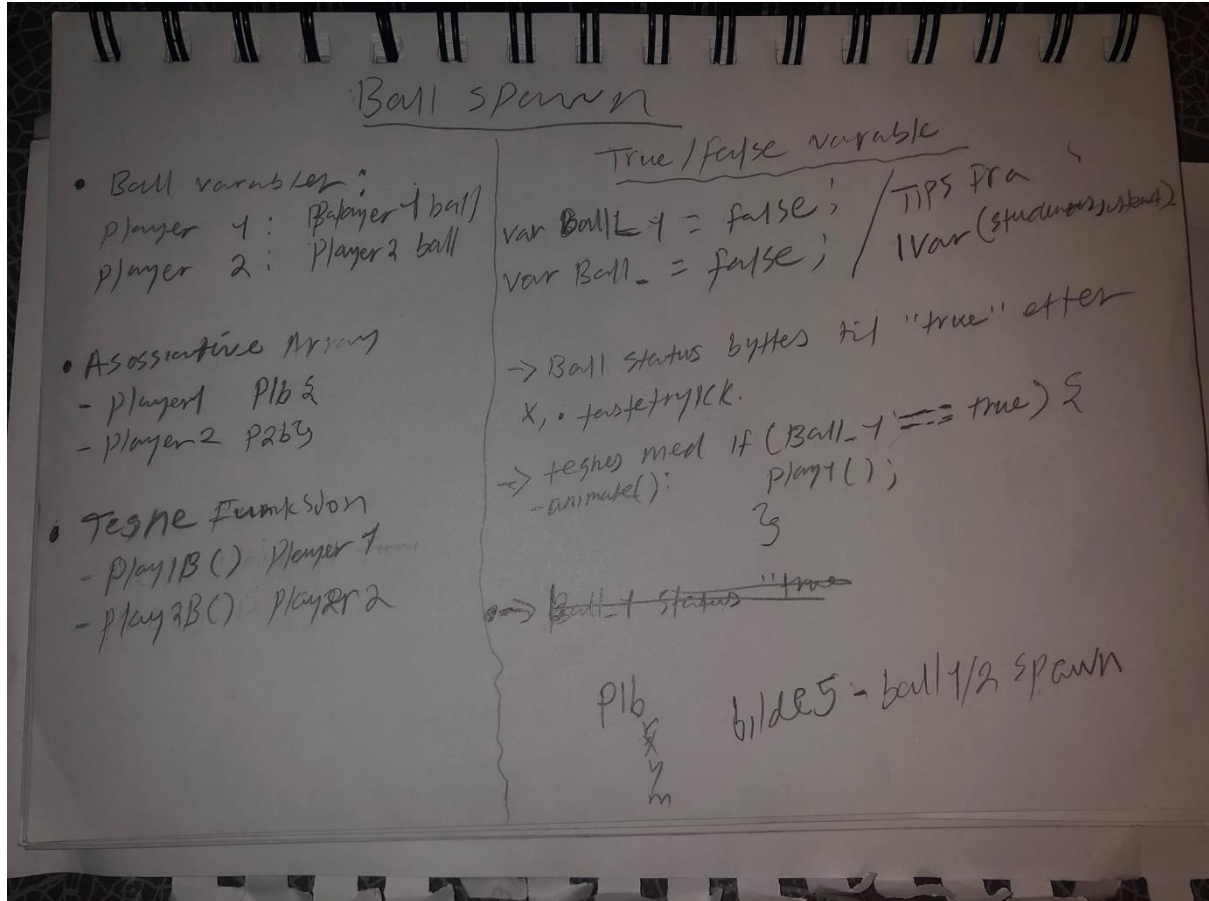 Ball spawn
• Ball varabler:
player 1: player 1 ball
player 2: Player 2 ball
• Asossiative Array
- player1 P1b {
- player2 P2b}
• Tegne Funksjon
- play1B() Player 1
- play2B() player 2
True/False varable
var Ball_1 = false; / TIPS fra
var Ball_ = false; / Ivar
-> Ball status byttes til "true" etter
X, . tastetrykk.
-> tegnes med if (Ball_1 === true) {
- animate(): play1();
}
-> Ball_1 status "true
P1b
x
y
m
bilde5 - ball 1/2 spawn